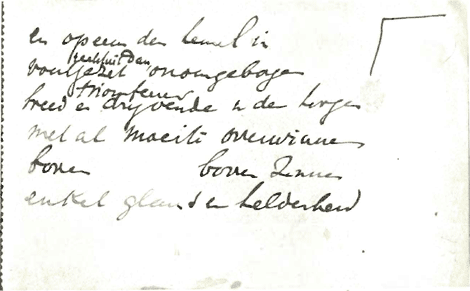 en opeens den hemel in
rechtuit den
voortgezet onomgebogen
triomfen
breed en drijvende in de hooge
met al moeite overwinnen
boven boven
enkel glans en helderheid